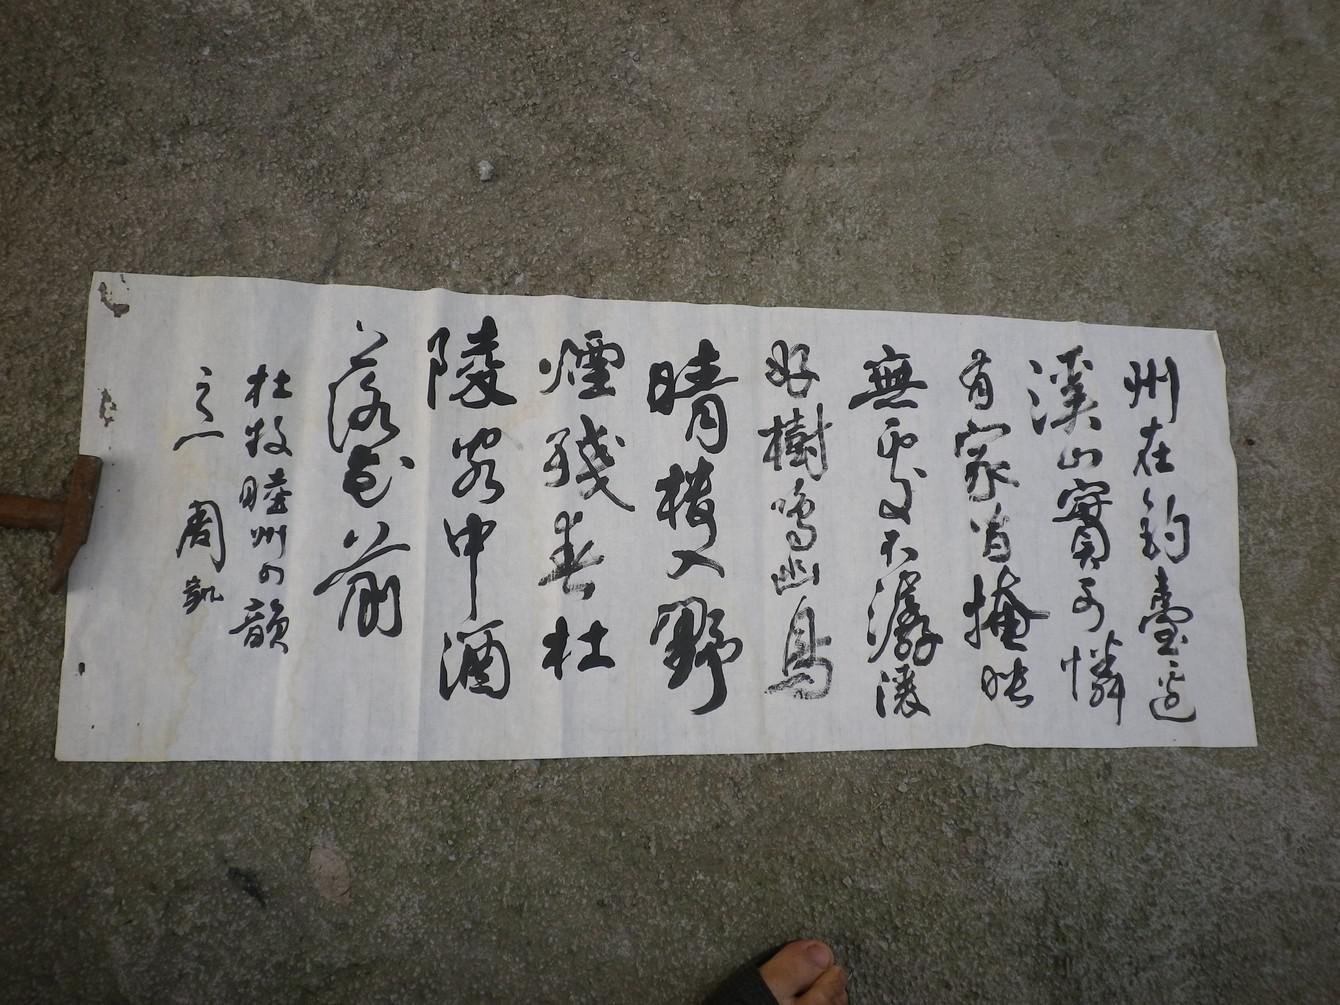 州在釣臺邊
溪山實可憐
有家皆掩映
無處不潺湲
好樹鳴幽鳥
晴樓入野
煙殘春杜
陵客中酒
落花前
杜牧睦州四韻
之一 周凱